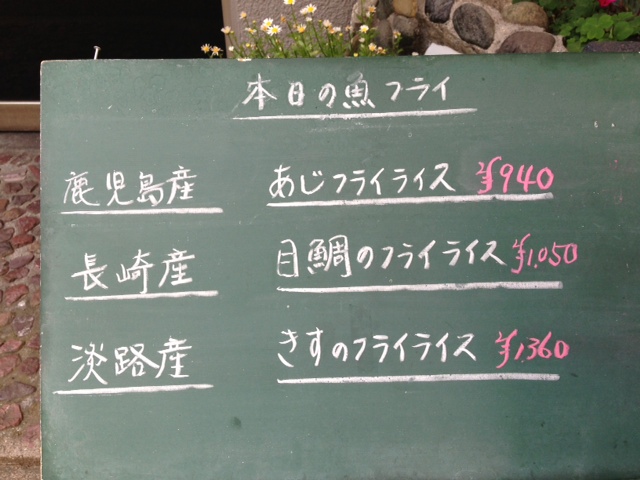 本日の魚フライ
鹿児島産 あじフライライス ¥940
長崎産 目鯛のフライライス ¥1,050
淡路産 きすのフライライス ¥1,360